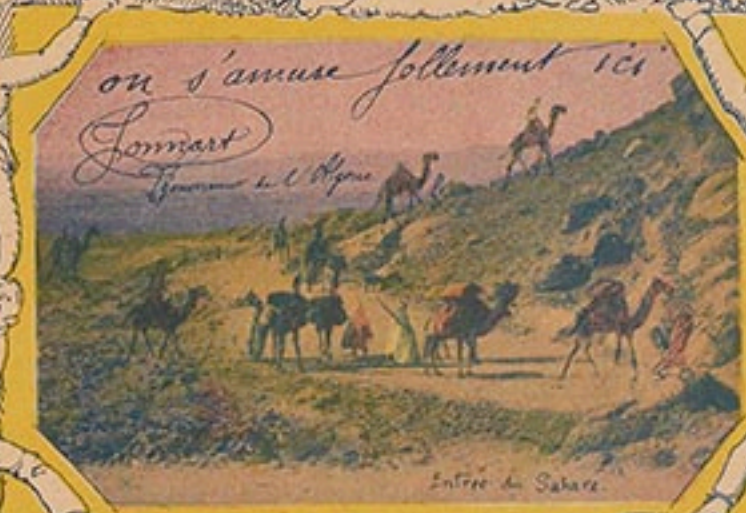 on s'amuse follement ici
Jonnart
Gouverneur de l'Algérie
Entrée du Sahara.